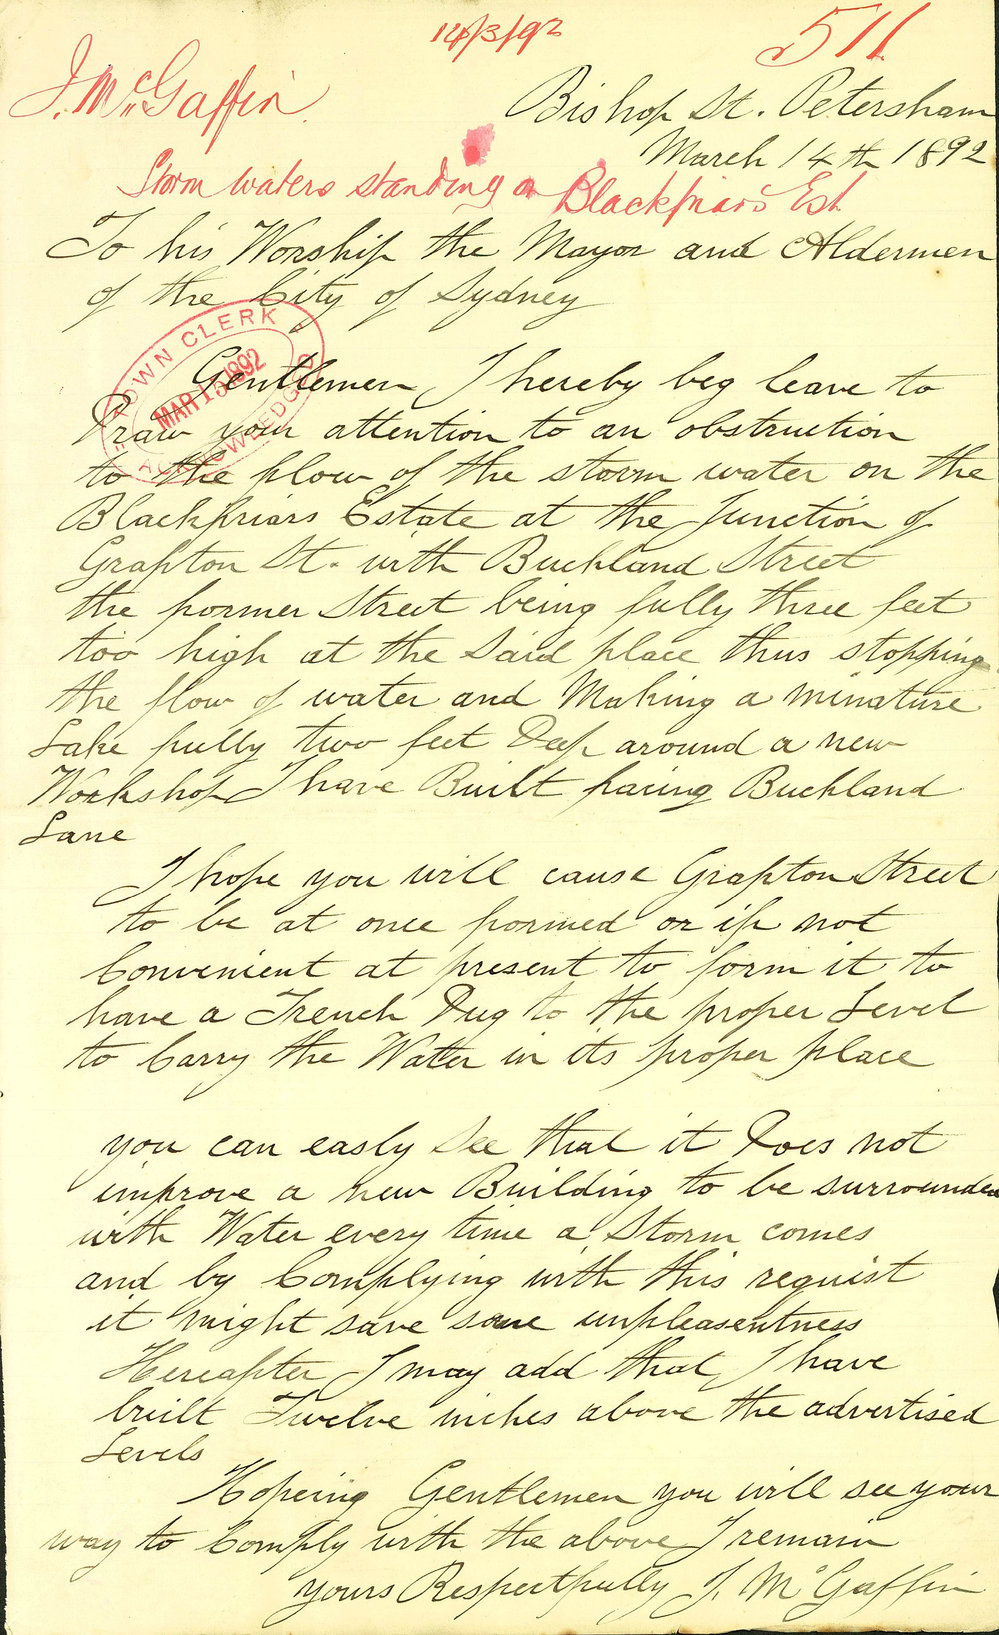 14/3/92
511
J. McGaffin
Bishop St. Petersham
March 14th 1892
Storm waters standing on Blackfriars Est
To his Worship the Mayor and Aldermen
of the City of Sydney
TOWN CLERK
MAR 15 1892
ACKNOWLEDGED
Gentlemen I hereby beg leave to
Draw your attention to an obstruction
to the flow of the storm water on the
Blackfriars Estate at the Junction of
Grafton St. with Buckland Street
the former Street being fully three feet
too high at the Said place thus stopping
the flow of water and Making a minature
Lake fully two feet Deep around a new
Workshop I have Built facing Buckland
Lane
I hope you will cause Grafton Street
to be at once formed or if not
Convenient at present to form it to
have a Trench Dug to the proper Level
to Carry the Water in its proper place
you can easly See that it Does not
improve a new Building to be surrounded
with Water every time a Storm comes
and by Complying with this requist
it might save some unpleasentness
Hereafter I may add that I have
built Twelve inches above the advertised
Levels
Hopeing Gentlemen you will see your
way to Comply with the above I remain
yours Respectfully J. McGaffin